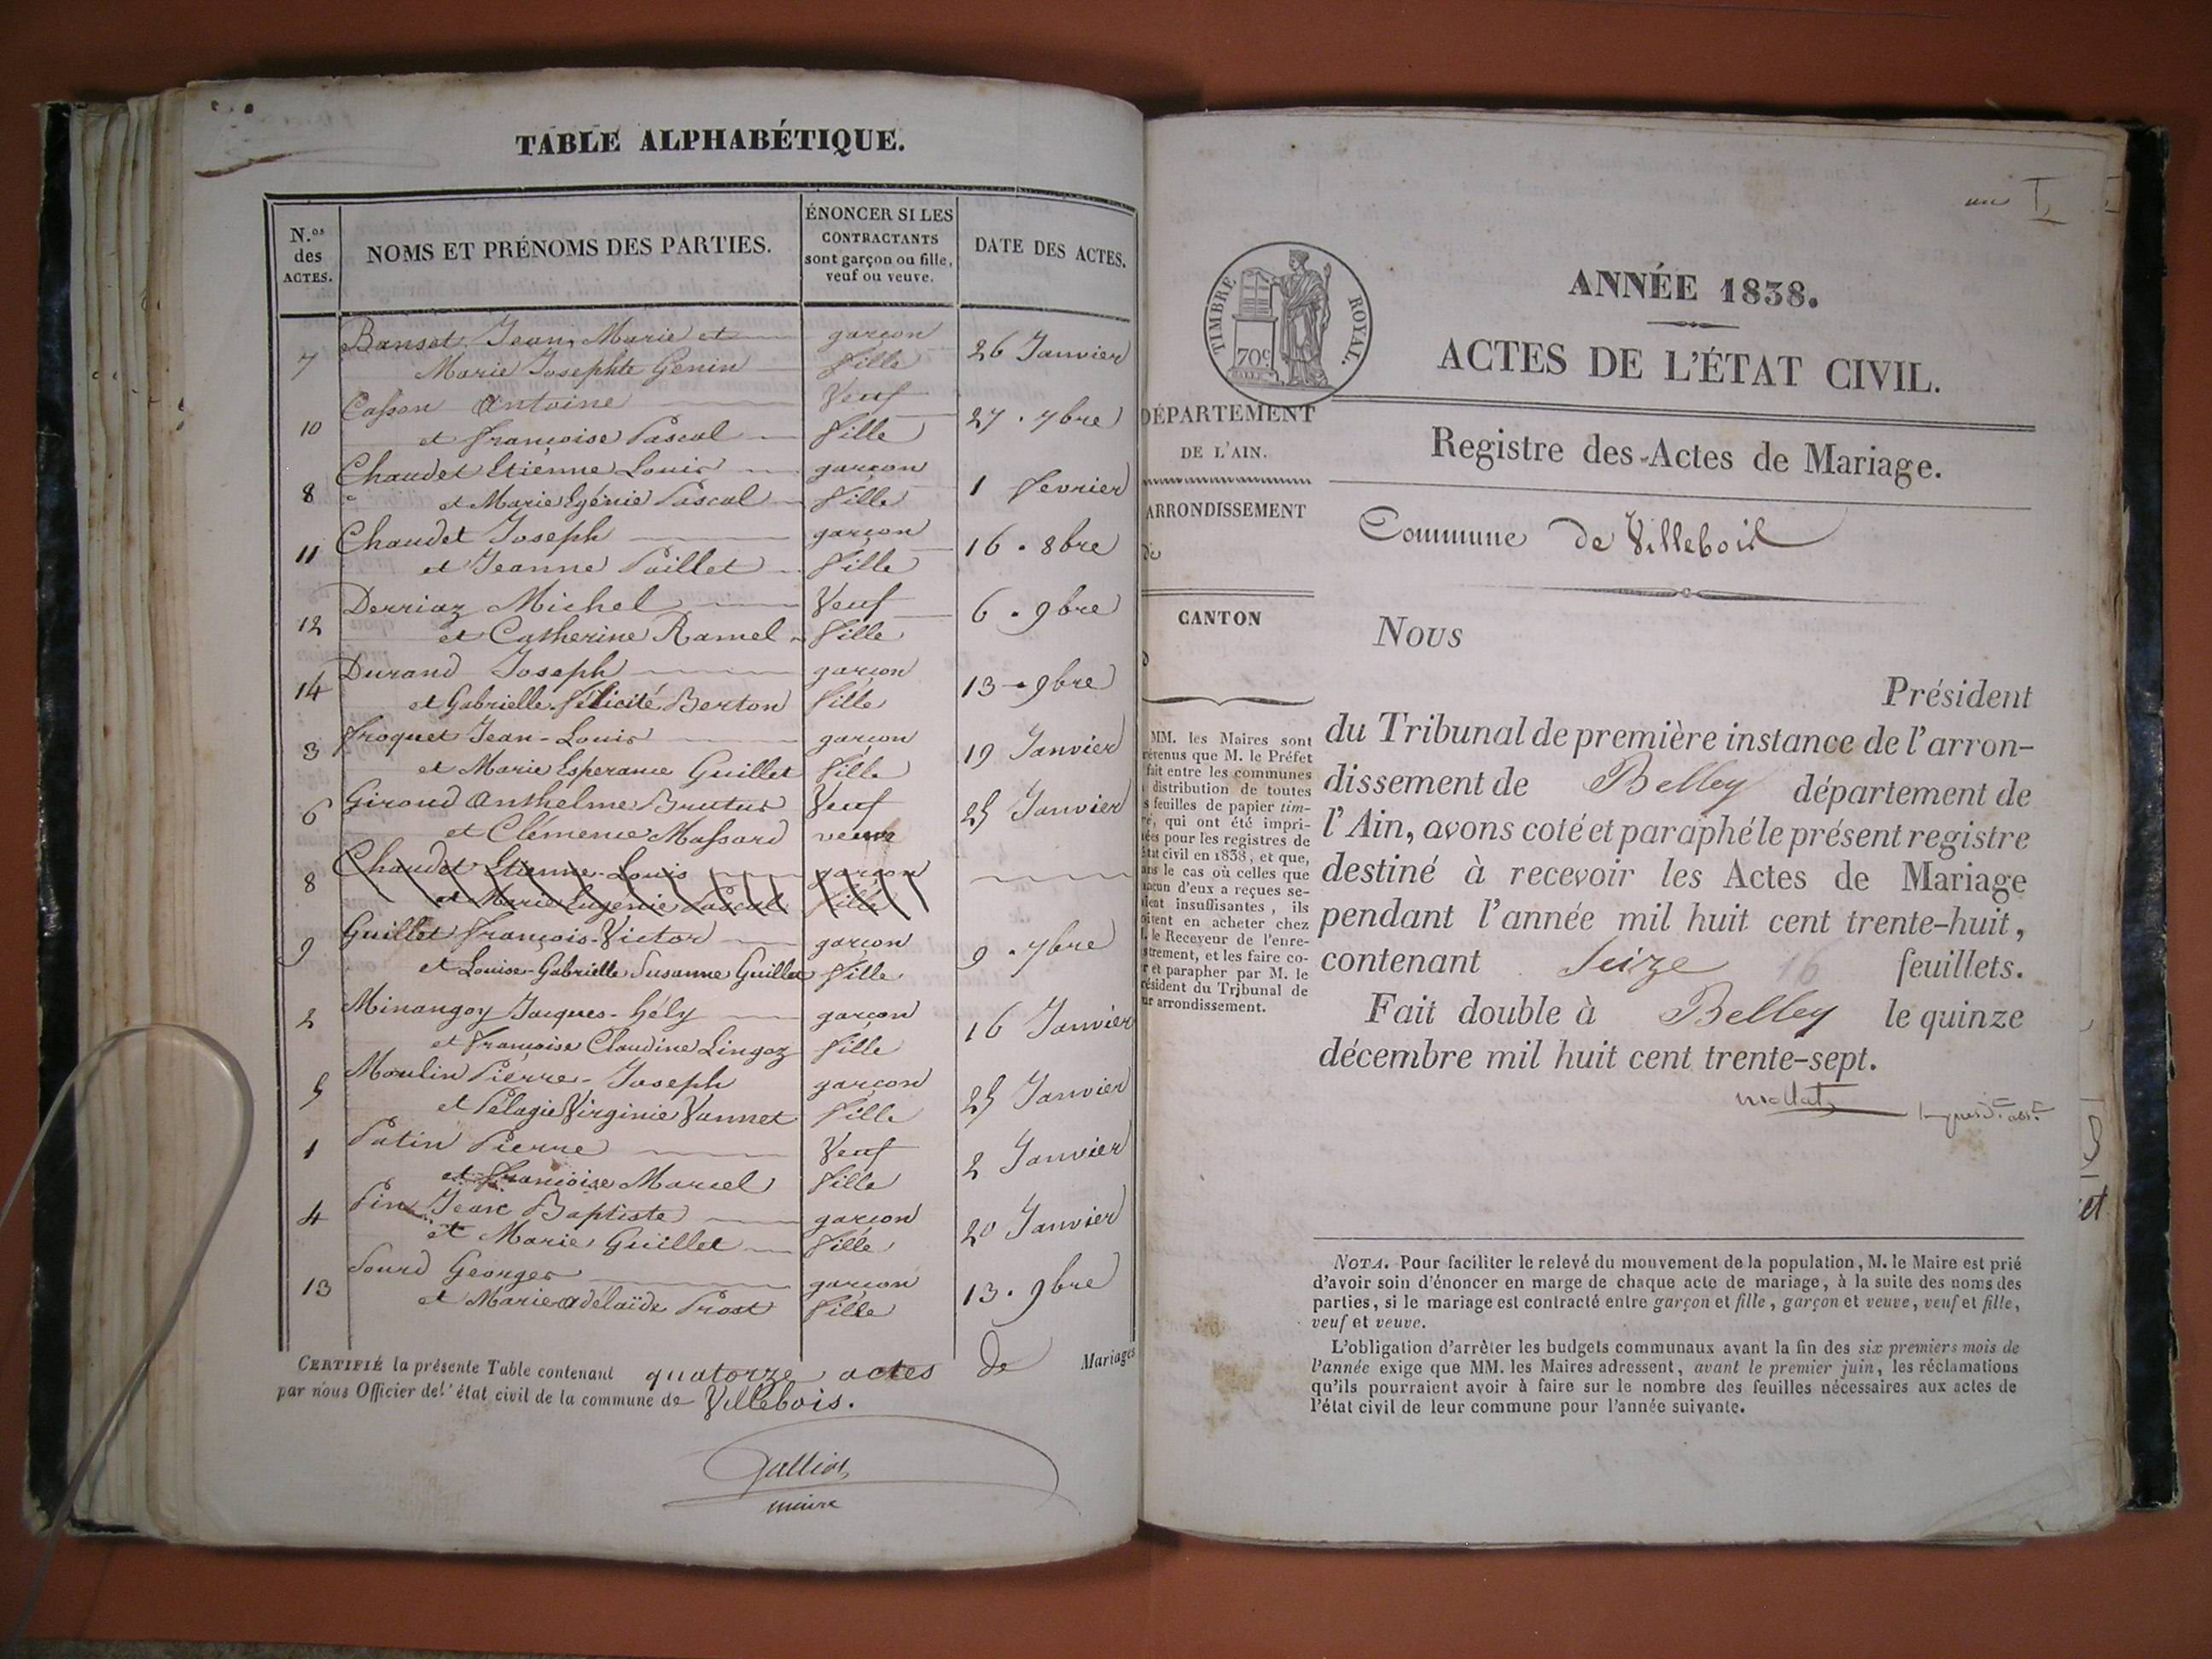 TABLE ALPHABÉTIQUE.
N.os des ACTES.
NOMS ET PRÉNOMS DES PARTIES.
ÉNONCER SI LES CONTRACTANTS sont garçon ou fille, veuf ou veuve.
DATE DES ACTES.
7 Bansot Jean Marie et garçon 26 Janvier
Marie Josephte Genin fille
10 Casson Antoine Veuf 27. 7bre
et Françoise Pascal fille
8 Chaudet Etiénne Louis garçon 1 fevrier
et Marie Egénie Pascal fille
11 Chaudet Joseph garçon 16. 8bre
et Jeanne Paillet fille
12 Derriaz Michel Veuf 6. 9bre
et Catherine Ramel fille
14 Durand Joseph garçon 13. 9bre
et Gabrielle félicité Berton fille
3 froquet Jean-Louis garçon 19 Janvier
et Marie Esperance Guillet fille
6 Giroud Anthelme Brutus Veuf 25 Janvier
et Clémence Massard veuve
8 Chaudet Etienne-Louis garçon
et Marie Eugenie Pascal fille
9 Guillet François-Victor garçon 9. 7bre
et Louise-Gabrielle Susanne Guillet fille
2 Minangoy Jacques-hély garçon 16 Janvier
et françoise Claudine Lingoz fille
5 Moulin Pierre-Joseph garçon 25 Janvier
et Pélagie Virginie Vannet fille
1 Patin Pierre Veuf 2 Janvier
et françoise Marcel fille
4 Pin Jean Baptiste garçon 20 Janvier
et Marie Guillet fille
13 Sourd Georges garçon 13. 9bre
et Marie adelaïde Prost fille
CERTIFIÉ la présente Table contenant quatorze actes de Mariages
par nous Officier de l'état civil de la commune de Villebois.
Galliot
maire
I
TIMBRE ROYAL.
70c
ANNÉE 1838.
ACTES DE L'ÉTAT CIVIL.
DÉPARTEMENT
DE L'AIN.
ARRONDISSEMENT
de
CANTON
Registre des Actes de Mariage.
Commune de Villebois
Nous
Président
du Tribunal de première instance de l'arron-
dissement de Belley département de
l'Ain, avons coté et paraphé le présent registre
destiné à recevoir les Actes de Mariage
pendant l'année mil huit cent trente-huit,
contenant Seize 16 feuillets.
Fait double à Belley le quinze
décembre mil huit cent trente-sept.
MM. les Maires sont
révenus que M. le Préfet
fait entre les communes
distribution de toutes
s feuilles de papier tim-
ré, qui ont été impri-
ées pour les registres de
état civil en 1838, et que,
ans le cas où celles que
hacun d'eux a reçues se-
aient insuffisantes, ils
oivent en acheter chez
l. le Receveur de l'enre-
strement, et les faire co-
r et parapher par M. le
résident du Tribunal de
ur arrondissement.
NOTA. Pour faciliter le relevé du mouvement de la population, M. le Maire est prié
d'avoir soin d'énoncer en marge de chaque acte de mariage, à la suite des noms des
parties, si le mariage est contracté entre garçon et fille, garçon et veuve, veuf et fille,
veuf et veuve.
L'obligation d'arrêter les budgets communaux avant la fin des six premiers mois de
l'année exige que MM. les Maires adressent, avant le premier juin, les réclamations
qu'ils pourraient avoir à faire sur le nombre des feuilles nécessaires aux actes de
l'état civil de leur commune pour l'année suivante.
et